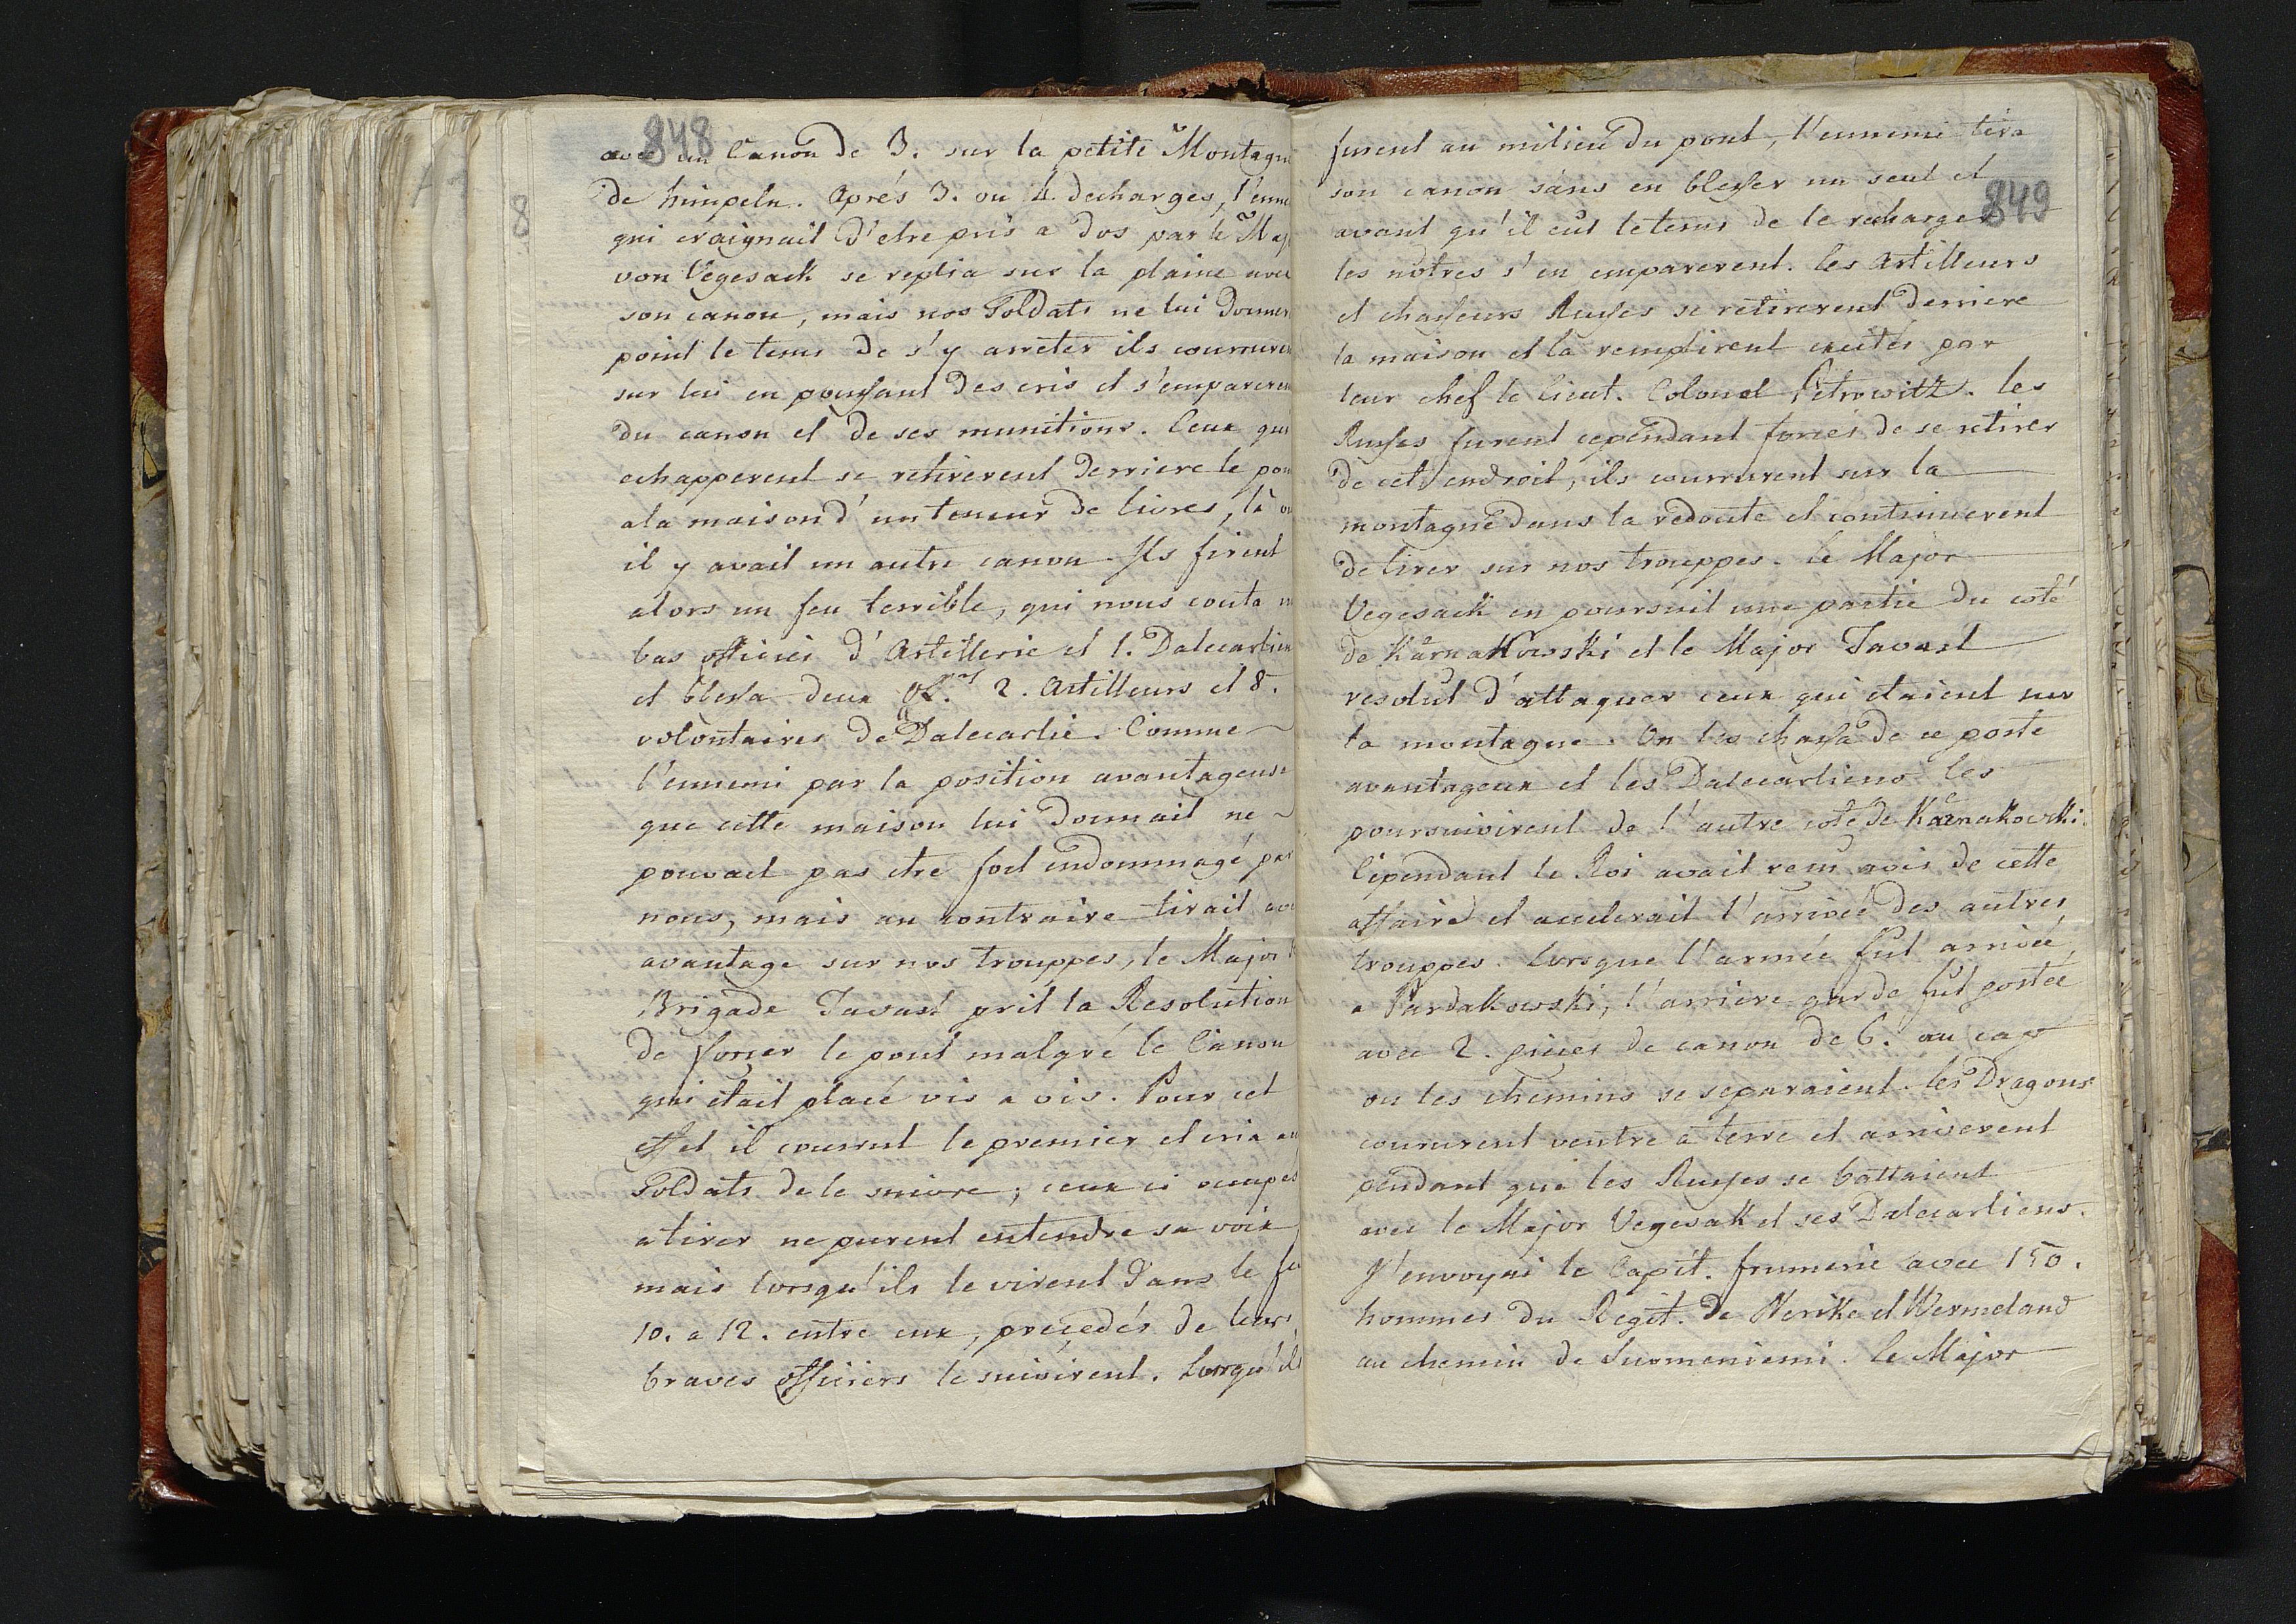 848
avec un Canon de 3. sur la petite Montagne
de himpeln. Aprés 3. ou 4 decharges, l'enne
qui craignait d'etre pris a dos par le Maj
von Vegesack se replia sur la plaine avec
son canon, mais nos Soldats ne lui donner
point le tems de s'y arreter ils coururen
sur lui en poussant des cris et s'empareren
du canon et de ses munitions. Ceux qui
echapperent se retirerent derriere le pon
a la maison d'un teneur de livres, là ou
il y avait un autre canon. Ils firent
alors un feu terrible, qui nous couta un
bas officier d'Artillerie et 1. Dalecarlien
et blessa deux Off. 2. Artilleurs et 8.
volontaires de Dalecarlie. Comme
l'ennemi par la position avantageuse
que cette maison lui donnait ne
pouvait pas etre fort endommagé par
nous, mais au contraire tirait avec
avantage sur nos trouppes, le Major
Brigade Tavast prit la Resolution
de forcer le pont malgré le Canon
qui était placé vis a vis. Pour cet
effet il courrut le premier et cria au
Soldats de le suivre; ceux ci occupés
a tirer ne purent entendre sa voix
mais lorsqu'ils le virent dans le feu
10. a 12. entre eux, preçedés de leurs
braves officiers le suivirent. Lorsqu'ils
849
furent au milieu du pont, l'ennemi tira
son canon sans en blesser un seul et
avant qu'il eut le tems de le recharger
les nôtres s'en emparerent. les Artilleurs
et chasseurs Russes se retirerent derriere
la maison et la remplirent excités par
leur chef le Lieut. Colonel Petrowitz. les
Russes furent cependant forcés de se retirer
de cet endroit, ils coururent sur la
montagne dans la redoute et continuerent
de tirer sur nos trouppes. le Major
Vegesack en poursuit une partie du coté
de Kärnakowski et le Major Tavast
resolut d'attaquer ceux qui etaient sur
la montagne. On les chassa de ce poste
avantageux et les Dalecarliens les
poursuivirent de l'autre coté de Kärnakowski.
Cependant le Roi avait reçu avis de cette
affaire et accelerait l'arrivée des autres
trouppes. Lorsque l'armée fut arrivée
a Pardakowski, l'arriere garde fut postée
avec 2. pieces de canon de 6. au cap
ou les chemins se separaient. les Dragons
coururent ventre a terre et arriverent
pendant que les Russes se battaient
avec le Major Vegesak et ses Dalecarliens.
J'envoyai le Capit. frumerie avec 150.
hommes du Regit. de Nerike et Wermeland
au chemin de Suomeniemi. le Major